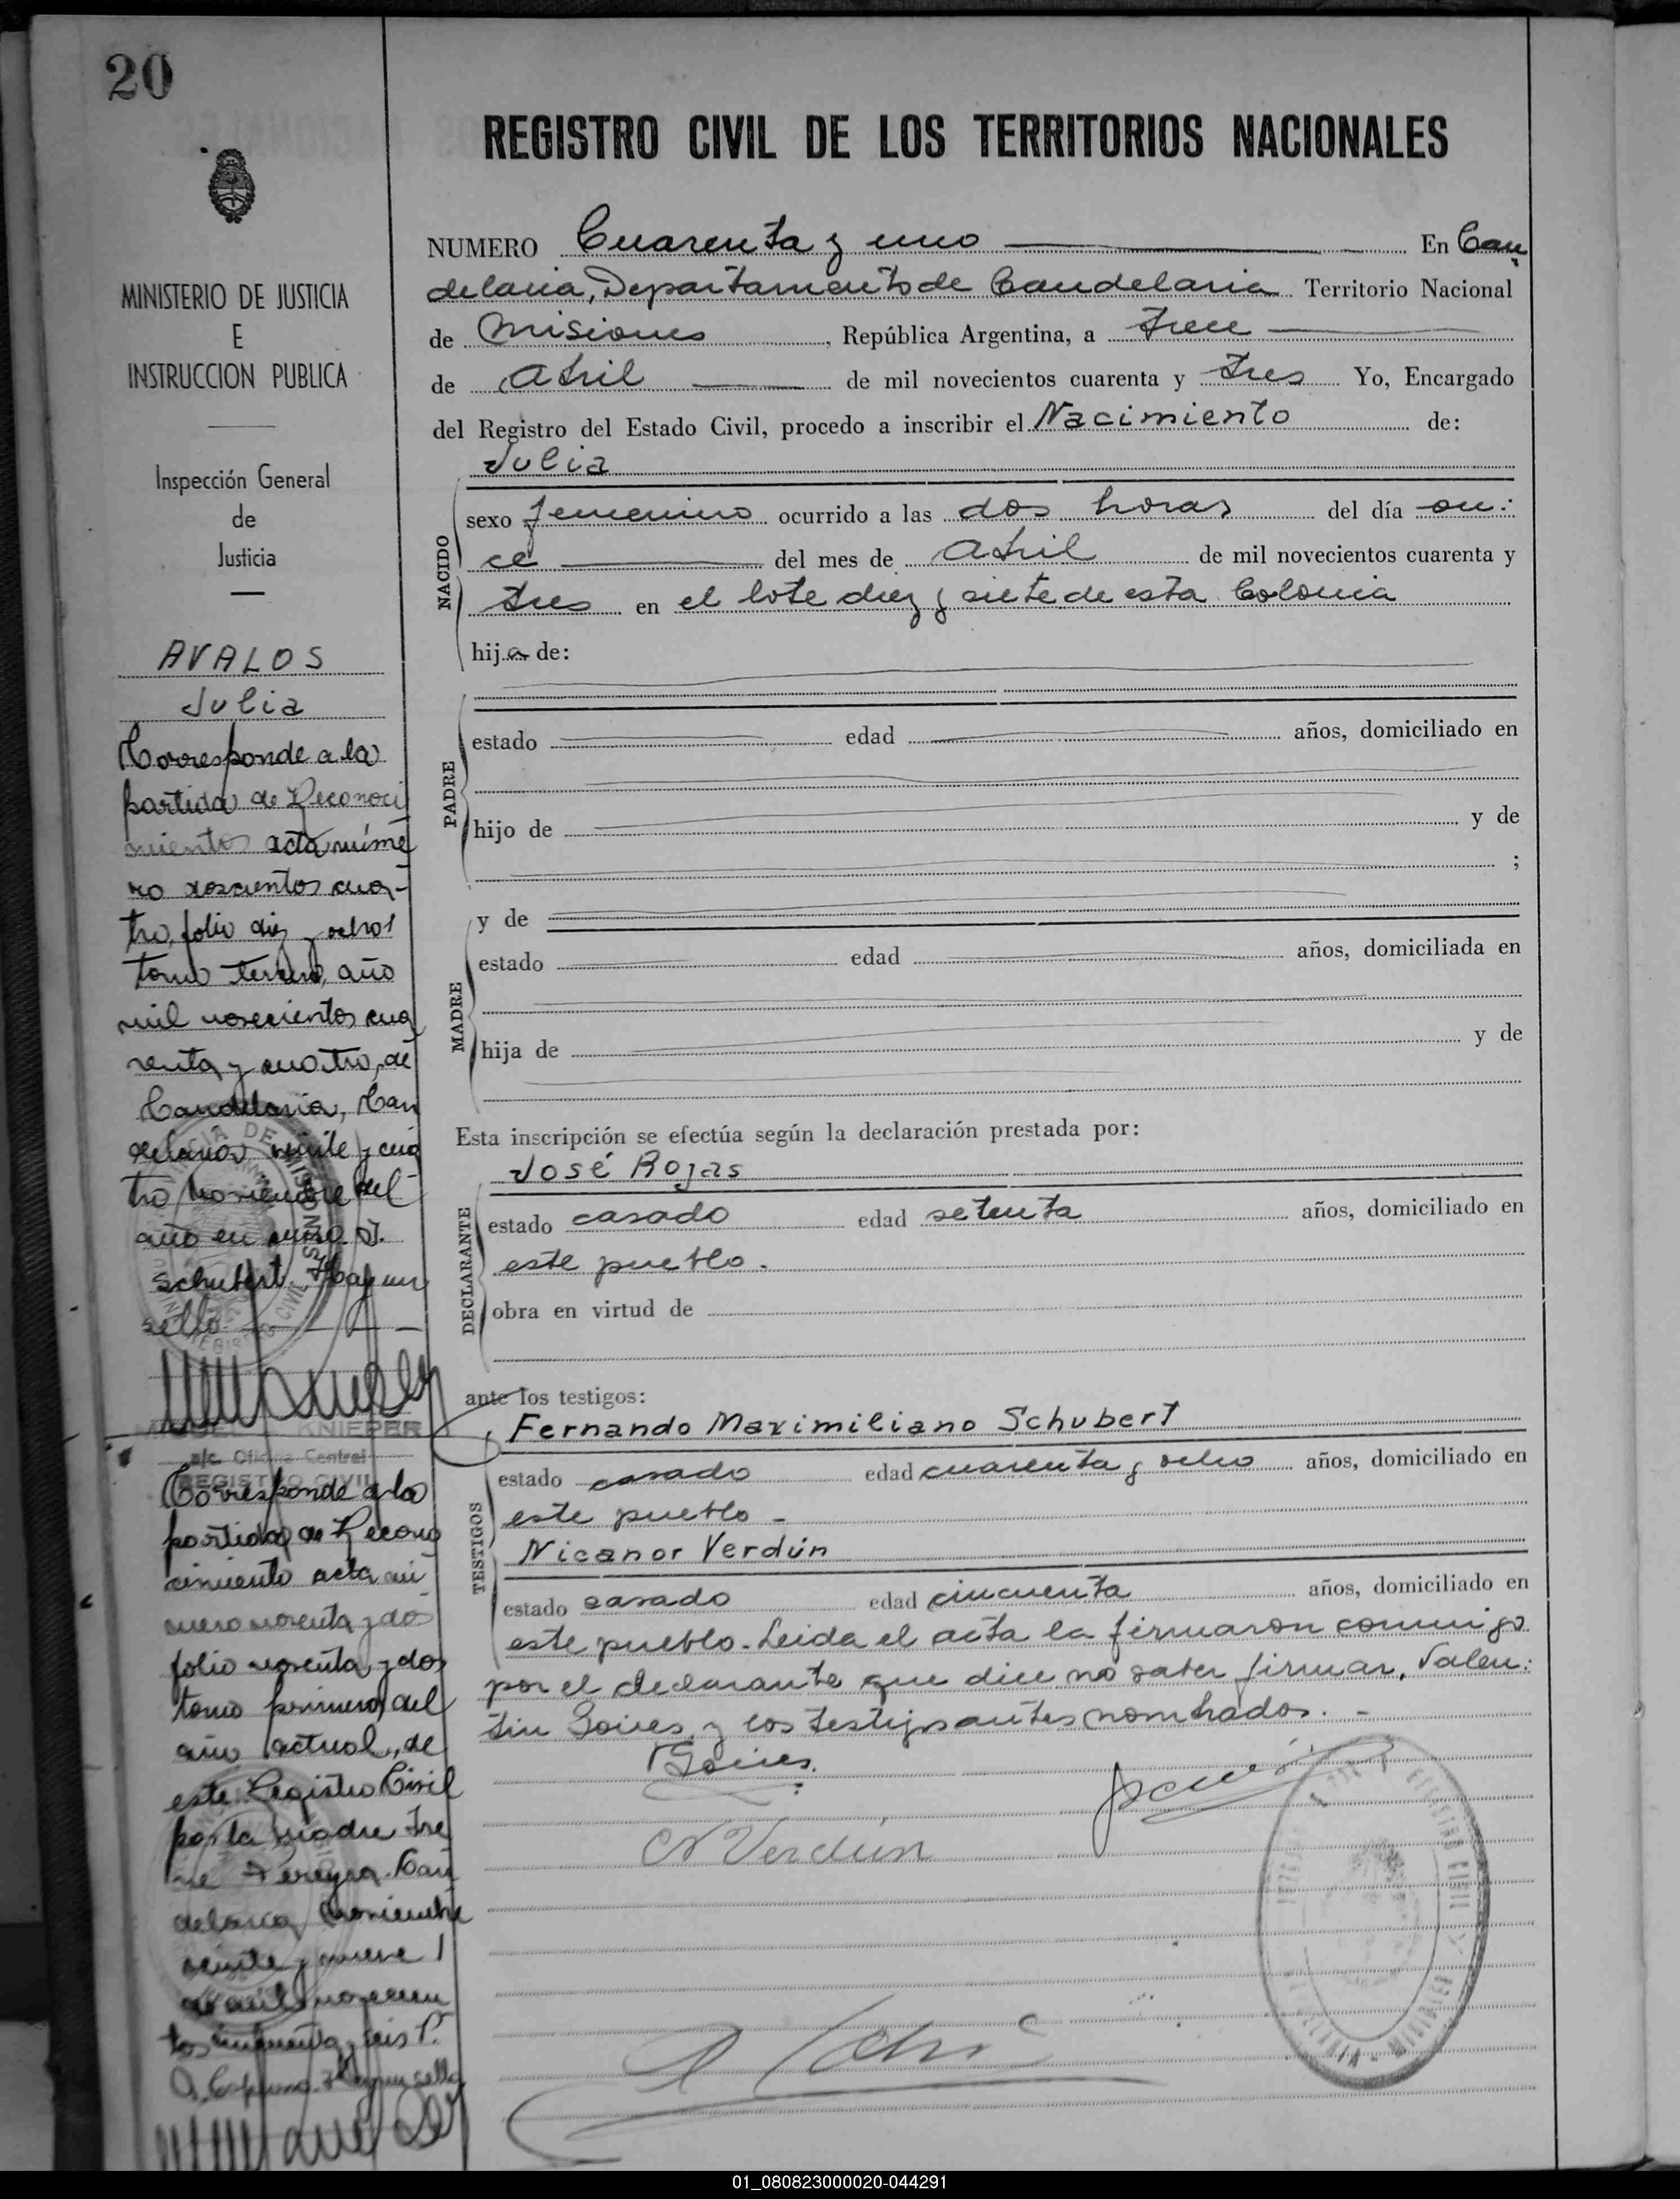 20
REGISTRO CIVIL DE LOS TERRITORIOS NACIONALES
MINISTERIO DE JUSTICIA
E
INSTRUCCION PUBLICA
Inspección General
de
Justicia
AVALOS
Julia
Corresponde a la
partida de Reconoci
miento acta núme
ro doscientos cua-
tro, folio diez y ocho
tomo tercero, año
mil novecientos cua
renta y cuatro, de
Candelaria, Can
delaria, veinte y cua
tro noviembre del
año en curso.
Schubert. Hay un
sello
KNIEPER
a/c. Oficina Central
REGISTRO CIVIL
Corresponde a la
partida de Recono
cimiento acta nú
mero noventa y dos
folio noventa y dos
tomo primero del
año actual, de
este Registro Civil
por la madre Ire
ne Pereyra. Can
delaria, noviembre
veinte y nueve
de mil novecien
tos cincuenta y seis P.
Hay un sello
NUMERO Cuarenta y uno En Can
delaria, Departamento de Candelaria Territorio Nacional
de Misiones, República Argentina, a Trece
de Abril de mil novecientos cuarenta y tres Yo, Encargado
del Registro del Estado Civil, procedo a inscribir el Nacimiento de:
Julia
NACIDO
sexo femenino ocurrido a las dos horas del día on:
ce del mes de Abril de mil novecientos cuarenta y
tres en el lote diez y siete de esta Colonia
hija de:
PADRE
estado edad años, domiciliado en
hijo de y de
;
y de
MADRE
estado edad años, domiciliada en
hija de y de
Esta inscripción se efectúa según la declaración prestada por:
José Rojas
DECLARANTE
estado casado edad setenta años, domiciliado en
este pueblo.
obra en virtud de
ante los testigos:
Fernando Maximiliano Schubert
TESTIGOS
estado casado edad cuarenta y ocho años, domiciliado en
este pueblo -
Nicanor Verdún
estado casado edad cincuenta años, domiciliado en
este pueblo. Leida el acta la firmaron conmigo
por el declarante que dice no saber firmar, Valen:
tin Goires y los testigos antes nombrados. -
VGoires.
N Verdún
01_080823000020-044291